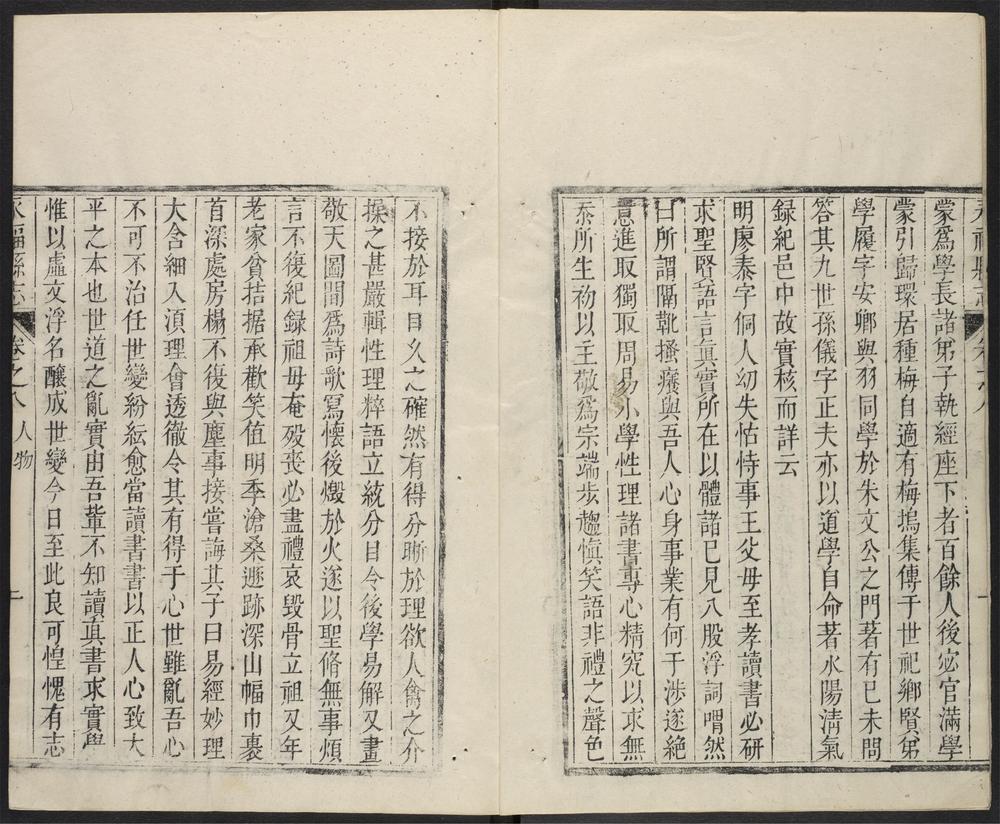 蒙爲學長諸弟子執經座下者百餘人後宓官滿學
蒙引歸環居種梅自適有梅塢集傳于世祀鄉賢弟
學履字安卿與羽同學於朱文公之門著有已未問
答其九世孫儀字正夫亦以道學自命著水陽淸氣
録紀邑中故實核而詳云
明廖泰字侗人幼失怙恃事王父母至孝讀書必硏
求聖賢語言眞實所在以體諸已見八股浮詞喟然
曰所謂隔靴搔癢與吾人心身事業有何干涉遂絶
意進取獨取周易小學性理諸書專心精究以求無
忝所生初以主敬爲宗端步趨愼笑語非禮之聲色
不接於耳目久之確然有得分晰於理欲人禽之介
操之甚嚴輯性理粹語立統分目令後學易解又畫
敬天圖間爲詩歌寫懷後燬於火遂以聖脩無事煩
言不復紀録祖母奄歿喪必盡禮哀毀骨立祖又年
老家貧拮据承歡笑值明季滄桑遯跡深山幅巾裹
首深處房榻不復與塵事接嘗誨其子曰易經妙理
大含細入湏理會透徹令其有得于心世雖亂吾心
不可不治任世變紛紜愈當讀書書以正人心致大
平之本也世道之亂實由吾輩不知讀眞書求實學
惟以虛文浮名釀成世變今日至此良可惶愧有志
永福縣志 卷之八 人物